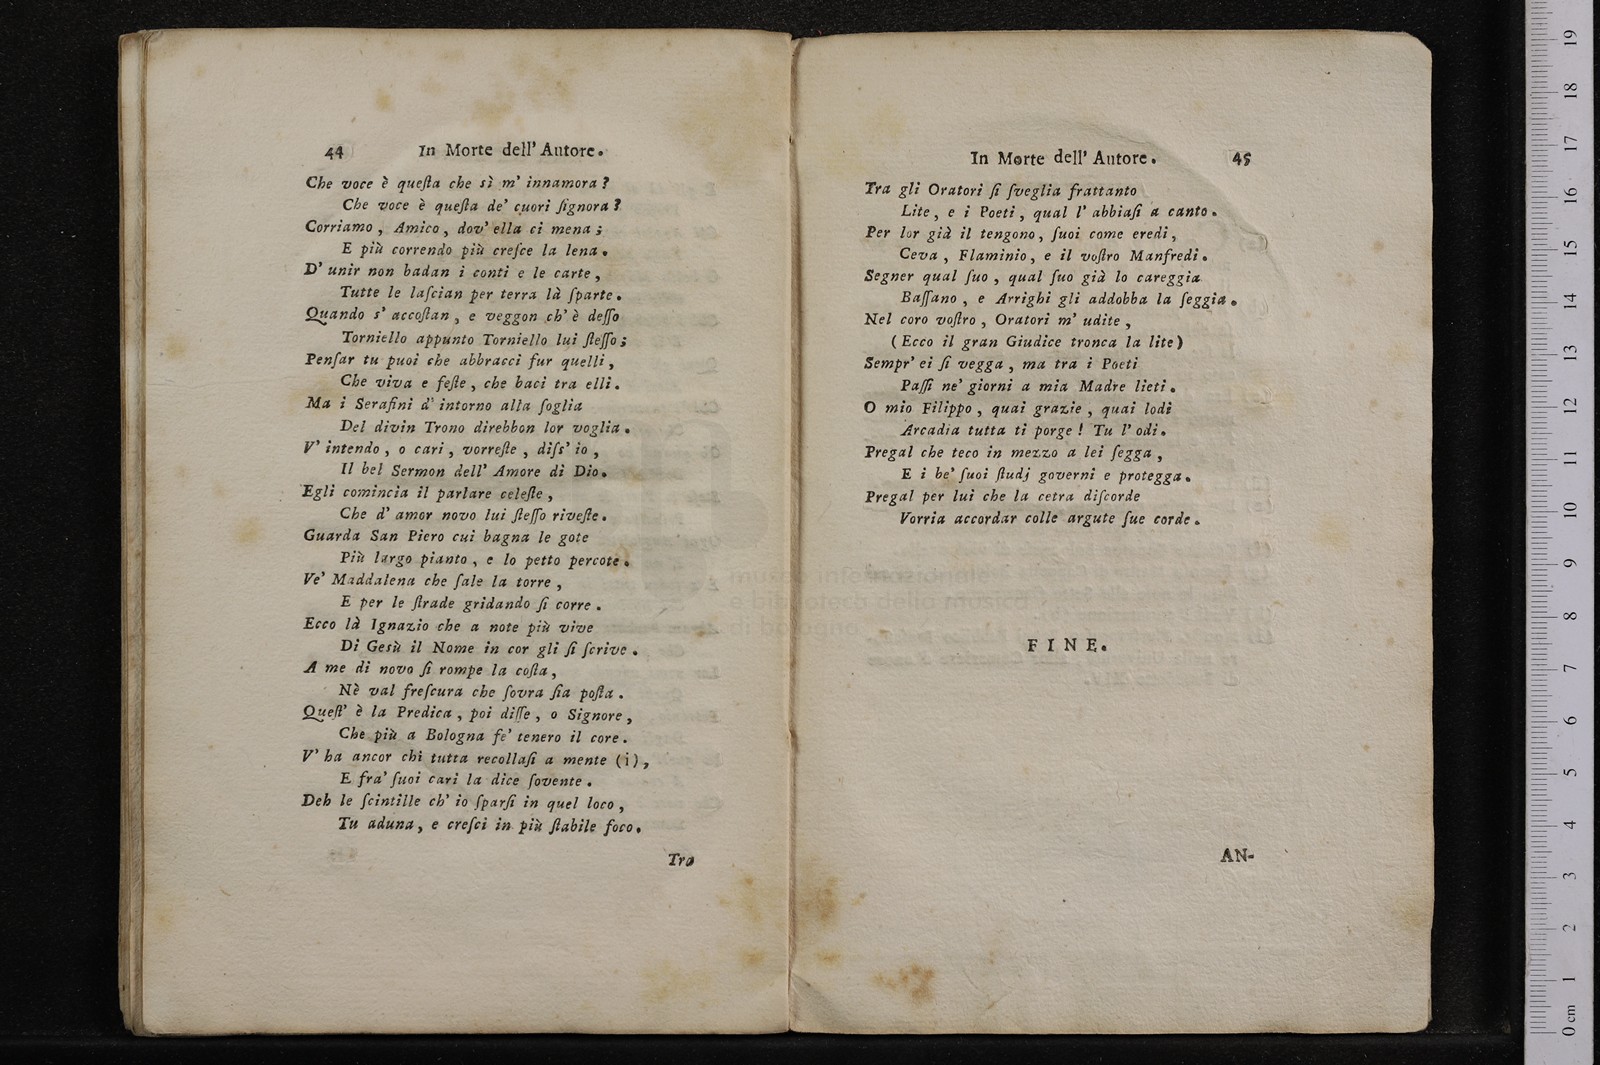 44 In Morte dell' Autore.
Che voce è queſta che sì m' innamora?
Che voce è queſta de' cuori ſignora?
Corriamo, Amico, dov' ella ci mena;
E più correndo più creſce la lena.
D' unir non badan i conti e le carte,
Tutte le laſcian per terra là ſparte.
Quando s' accoſtan, e veggon ch' è deſſo
Torniello appunto Torniello lui ſteſſo;
Penſar tu puoi che abbracci fur quelli,
Che viva e feſte, che baci tra elli.
Ma i Serafini d' intorno alla ſoglia
Del divin Trono direbbon lor voglia.
V' intendo, o cari, vorreſte, diſs' io,
Il bel Sermon dell' Amore di Dio.
Egli comincia il parlare celeſte,
Che d' amor novo lui ſteſſo riveſte.
Guarda San Piero cui bagna le gote
Più largo pianto, e lo petto percote.
Ve' Maddalena che ſale la torre,
E per le ſtrade gridando ſi corre.
Ecco là Ignazio che a note più vive
Di Gesù il Nome in cor gli ſi ſcrive.
A me di novo ſi rompe la coſta,
Nè val freſcura che ſovra ſia poſta.
Queſt' è la Predica, poi diſſe, o Signore,
Che più a Bologna fe' tenero il core.
V' ha ancor chi tutta recollaſi a mente (i),
E fra' ſuoi cari la dice ſovente.
Deh le ſcintille ch' io ſparſi in quel loco,
Tu aduna, e creſci in più ſtabile foco.
Tra
In Morte dell' Autore. 45
Tra gli Oratori ſi ſveglia frattanto
Lite, e i Poeti, qual l' abbiaſi a canto.
Per lor già il tengono, ſuoi come eredi,
Ceva, Flaminio, e il voſtro Manfredi.
Segner qual ſuo, qual ſuo già lo careggia
Baſſano, e Arrighi gli addobba la ſeggia.
Nel coro voſtro, Oratori m' udite,
(Ecco il gran Giudice tronca la lite)
Sempr' ei ſi vegga, ma tra i Poeti
Paſſi ne' giorni a mia Madre lieti.
O mio Filippo, quai grazie, quai lodi
Arcadia tutta ti porge! Tu l' odi.
Pregal che teco in mezzo a lei ſegga,
E i be' ſuoi ſtudj governi e protegga.
Pregal per lui che la cetra diſcorde
Vorria accordar colle argute ſue corde.
museo internazionale
e biblioteca della musica
di bologna
FINE.
AN-
0 cm 1 2 3 4 5 6 7 8 9 10 11 12 13 14 15 16 17 18 19